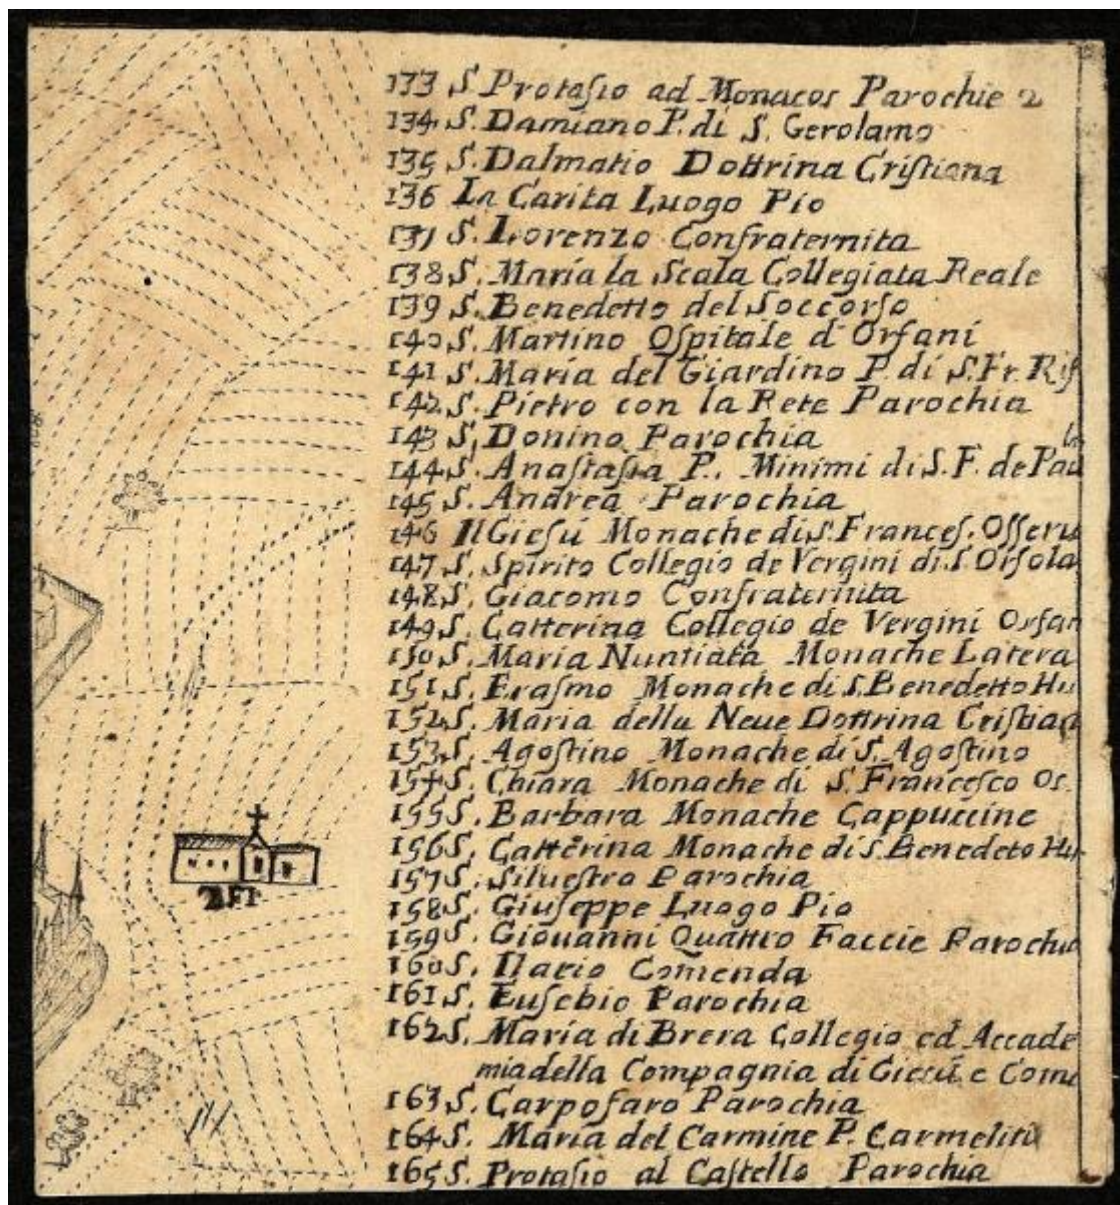 133 S. Protaſio ad Monacos Parochie 2
134 S. Damiano P. di S. Gerolamo
135 S. Dalmatio Dottrina Criſtiana
136 La Carita Luogo Pio
137 S. Lorenzo Confraternita
138 S. Maria la Scala Collegiata Reale
139 S. Benedetto del Soccorſo
140 S. Martino Oſpitale d Orfani
141 S. Maria del Giardino P. di S. Fr. Rif
142 S. Pietro con la Rete Parochia
143 S. Donino Parochia
144 S. Anaſtaſia P. Minimi di S. F. de Pau
145 S. Andrea Parochia
146 Il Gieſú Monache di S. Franceſ. Oſſeru
147 S. Spirito Collegio de Vergini di S. Orſola
148 S. Giacomo Confraternita
149 S. Catterina Collegio de Vergini Orfan
150 S. Maria Nuntiata Monache Latera
151 S. Eraſmo Monache di S. Benedetto Hu
152 S. Maria della Neue Dottrina Criſtian
153 S. Agoſtino Monache di S. Agoſtino
154 S. Chiara Monache di S. Franceſco Oſ.
155 S. Barbara Monache Cappuccine
156 S. Catterina Monache di S. Benedeto Hu
157 S. Silueſtro Parochia
158 S. Giuſeppe Luogo Pio
159 S. Giouanni Quattro Faccie Parochia
160 S. Ilario Comenda
161 S. Euſebio Parochia
162 S. Maria di Brera Collegio ed Accade
mia della Compagnia di Gieſú e Com
163 S. Carpofaro Parochia
164 S. Maria del Carmine P. Carmeliti
165 S. Protaſio al Caſtello Parochia